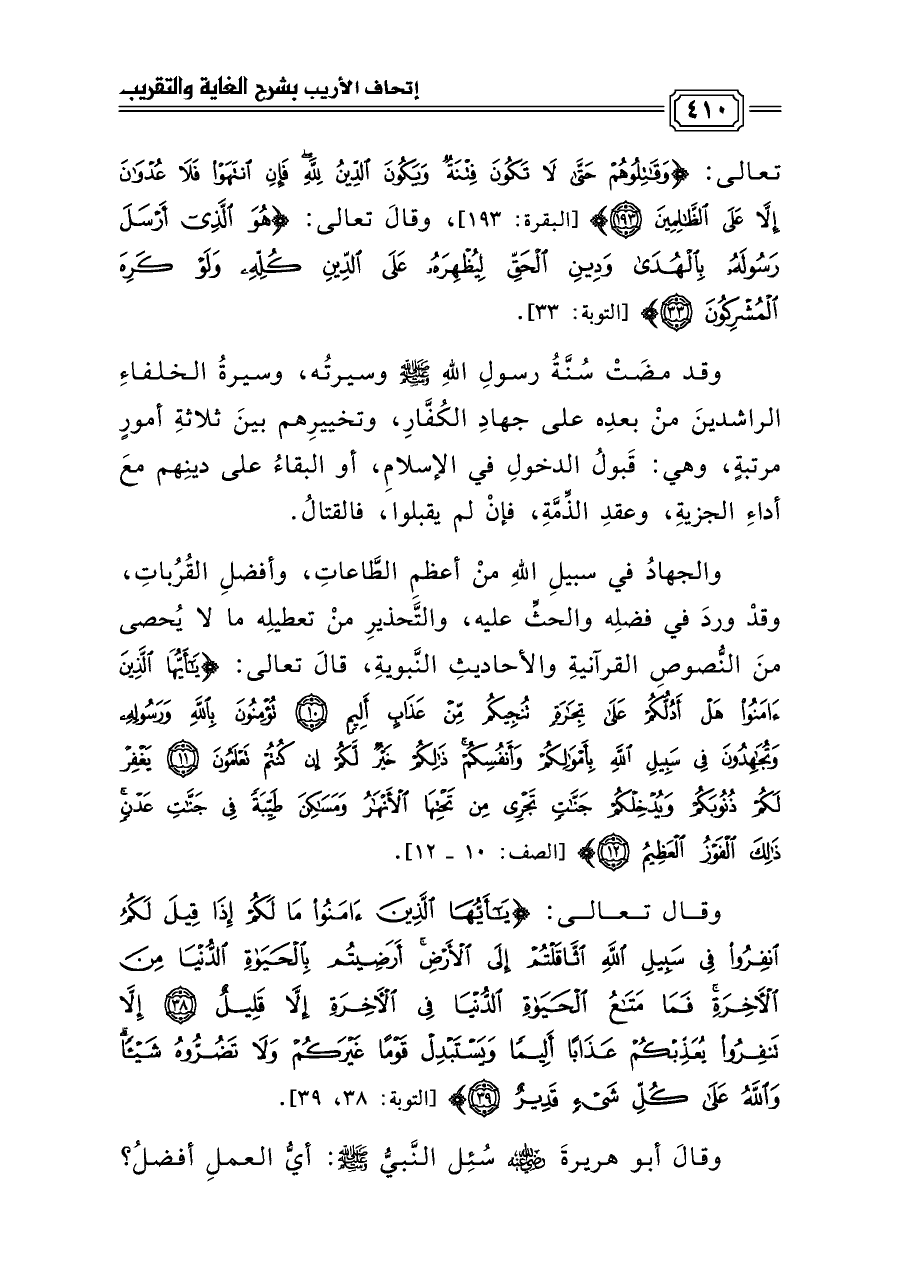 إتحاف الأريب بشرح الغاية والتقريب
٤١٠
تعالى: ﴿وَقَٰتِلُوهُمْ حَتَّىٰ لَا تَكُونَ فِتْنَةٌ وَيَكُونَ ٱلدِّينُ لِلَّهِۖ فَإِنِ ٱنتَهَوْا۟ فَلَا عُدْوَٰنَ
إِلَّا عَلَى ٱلظَّٰلِمِينَ ١٩٣﴾ [البقرة: ١٩٣]، وقالَ تعالى: ﴿هُوَ ٱلَّذِىٓ أَرْسَلَ
رَسُولَهُۥ بِٱلْهُدَىٰ وَدِينِ ٱلْحَقِّ لِيُظْهِرَهُۥ عَلَى ٱلدِّينِ كُلِّهِۦ وَلَوْ كَرِهَ
ٱلْمُشْرِكُونَ ٣٣﴾ [التوبة: ٣٣].
وقد مضَتْ سُنَّةُ رسولِ اللهِ ﷺ وسيرتُه، وسيرةُ الخلفاءِ
الراشدينَ منْ بعدِه على جهادِ الكُفَّارِ، وتخييرِهم بينَ ثلاثةِ أمورٍ
مرتبةٍ، وهي: قَبولُ الدخولِ في الإسلامِ، أو البقاءُ على دينِهم معَ
أداءِ الجزيةِ، وعقدِ الذِّمَّةِ، فإنْ لم يقبلوا، فالقتالُ.
والجهادُ في سبيلِ اللهِ منْ أعظمِ الطَّاعاتِ، وأفضلِ القُرُباتِ،
وقدْ وردَ في فضلِه والحثِّ عليه، والتَّحذيرِ منْ تعطيلِه ما لا يُحصى
منَ النُّصوصِ القرآنيةِ والأحاديثِ النَّبويةِ، قالَ تعالى: ﴿يَٰٓأَيُّهَا ٱلَّذِينَ
ءَامَنُوا۟ هَلْ أَدُلُّكُمْ عَلَىٰ تِجَٰرَةٍ تُنجِيكُم مِّنْ عَذَابٍ أَلِيمٍ ١٠ تُؤْمِنُونَ بِٱللَّهِ وَرَسُولِهِۦ
وَتُجَٰهِدُونَ فِى سَبِيلِ ٱللَّهِ بِأَمْوَٰلِكُمْ وَأَنفُسِكُمْۚ ذَٰلِكُمْ خَيْرٌ لَّكُمْ إِن كُنتُمْ تَعْلَمُونَ ١١ يَغْفِرْ
لَكُمْ ذُنُوبَكُمْ وَيُدْخِلْكُمْ جَنَّٰتٍ تَجْرِى مِن تَحْتِهَا ٱلْأَنْهَٰرُ وَمَسَٰكِنَ طَيِّبَةً فِى جَنَّٰتِ عَدْنٍۚ
ذَٰلِكَ ٱلْفَوْزُ ٱلْعَظِيمُ ١٢﴾ [الصف: ١٠ ـ ١٢].
وقال تعالى: ﴿يَٰٓأَيُّهَا ٱلَّذِينَ ءَامَنُوا۟ مَا لَكُمْ إِذَا قِيلَ لَكُمُ
ٱنفِرُوا۟ فِى سَبِيلِ ٱللَّهِ ٱثَّاقَلْتُمْ إِلَى ٱلْأَرْضِۚ أَرَضِيتُم بِٱلْحَيَوٰةِ ٱلدُّنْيَا مِنَ
ٱلْءَاخِرَةِۚ فَمَا مَتَٰعُ ٱلْحَيَوٰةِ ٱلدُّنْيَا فِى ٱلْءَاخِرَةِ إِلَّا قَلِيلٌ ٣٨ إِلَّا
تَنفِرُوا۟ يُعَذِّبْكُمْ عَذَابًا أَلِيمًا وَيَسْتَبْدِلْ قَوْمًا غَيْرَكُمْ وَلَا تَضُرُّوهُ شَيْـًٔاۗ
وَٱللَّهُ عَلَىٰ كُلِّ شَىْءٍ قَدِيرٌ ٣٩﴾ [التوبة: ٣٨، ٣٩].
وقالَ أبو هريرةَ رضي الله عنه سُئِل النَّبيُّ ﷺ: أيُّ العملِ أفضلُ؟